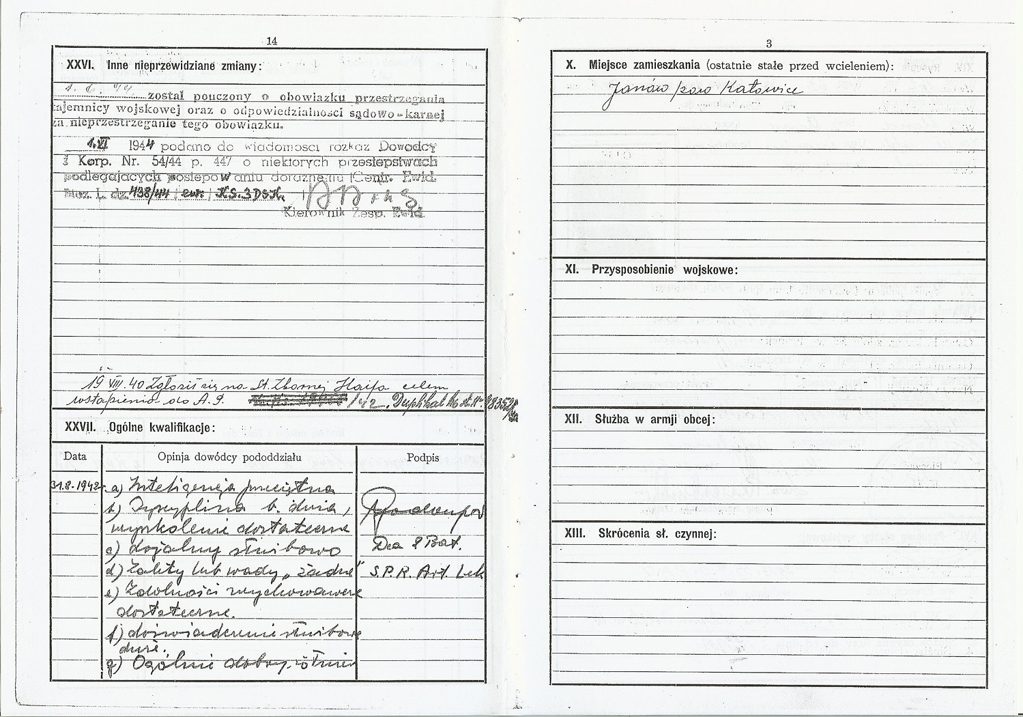 14
XXVI. Inne nieprzewidziane zmiany:
1. 6. 44 został pouczony o obowiązku przestrzegania
tajemnicy wojskowej oraz o odpowiedzialności sądowo-karnej
za nieprzestrzeganie tego obowiązku.
1.VI 1944 podano do wiadomości rozkaz Dowódcy
2 Korp. Nr. 54/44 p. 447 o niektórych przestępstwach
podlegających postępowaniu doraźnemu (Centr. Ewid.
L. dz. 438/44
Kierownik Zesp. Ewid.
19 VIII. 40 zgłosił się na St. Zbornej Haifa celem
wstąpienia do A.P. /42. Duplikat
XXVII. Ogólne kwalifikacje:
Data Opinja dowódcy pododdziału Podpis
31.8.1942 a) Inteligencja przeciętna
b) Dyscyplina b. duża,
wyszkolenie dostateczne
c) lojalny służbowo
Dca 2 Bat.
d) Zalety lub wady „żadne" S.P.R. Art. Lek
e) Zdolności wychowawcze
dostateczne.
f) doświadczenie służbowe
duże.
g) Ogólnie dobry żołnierz
3
X. Miejsce zamieszkania (ostatnie stałe przed wcieleniem):
Janów pow Katowice
XI. Przysposobienie wojskowe:
XII. Służba w armji obcej:
XIII. Skrócenia sł. czynnej: